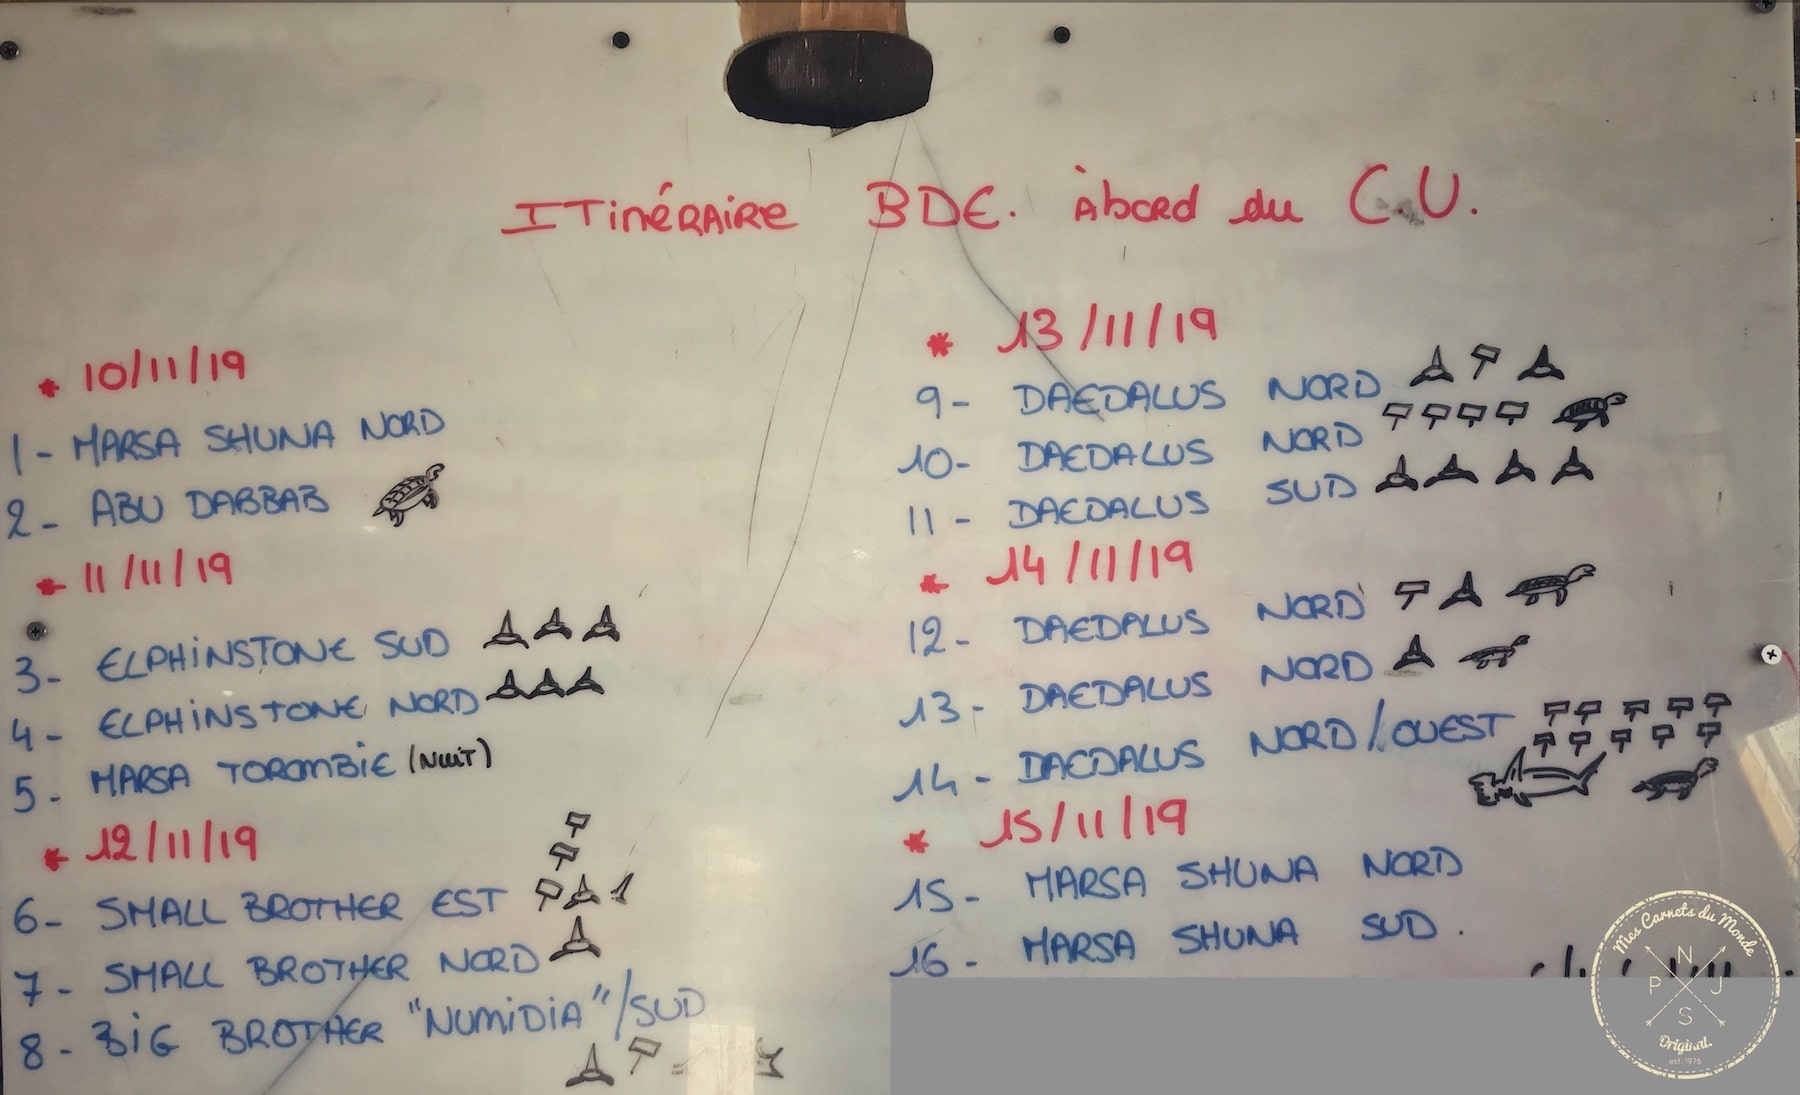 ITinéRAiRe BDE. àbord du C.U.
* 10/11/19
1- MARSA SHUNA NORD
2- ABU DABBAB
* 11/11/19
3- ELPHiNSTONE SUD
4- ELPHiNSTONE NORD
5- MARSA TOROMBiE (NuiT)
* 12/11/19
6- SMALL BROTHER EST
7- SMALL BROTHER NORD
8- BiG BROTHER "NUMiDiA"/SUD
* 13/11/19
9- DAEDALUS NORD
10- DAEDALUS NORD
11- DAEDALUS SUD
* 14/11/19
12- DAEDALUS NORD
13- DAEDALUS NORD
14- DAEDALUS NORD/OUEST
* 15/11/19
15- MARSA SHUNA NORD
16- MARSA SHUNA SUD.
Mes Carnets du Monde
N
P J
S
Original.
est. 1976